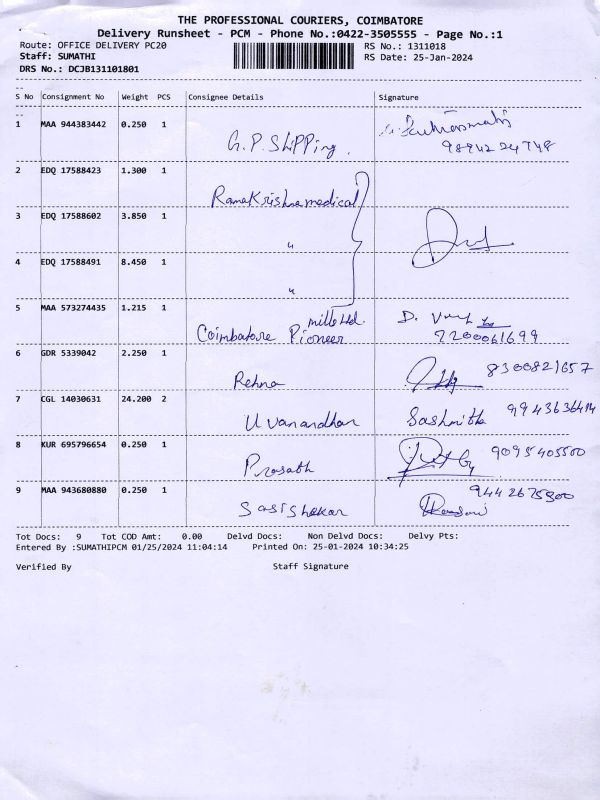 THE PROFESSIONAL COURIERS, COIMBATORE
Delivery Runsheet - PCM - Phone No.:0422-3505555 - Page No.:1
Route: OFFICE DELIVERY PC20
RS No.: 1311018
Staff: SUMATHI
RS Date: 25-Jan-2024
DRS No.: DCJB131101801
S No Consignment No Weight PCS Consignee Details Signature
1 MAA 944383442 0.250 1 G.P. Shipping.
9894224748
2 EDQ 17588423 1.300 1 Ramakrishna medical
3 EDQ 17588602 3.850 1 "
4 EDQ 17588491 8.450 1 "
5 MAA 573274435 1.215 1 Coimbatore Pioneer mills ltd. D.
7200061699
6 GDR 5339042 2.250 1 Rehna 8300821657
7 CGL 14030631 24.200 2 Uvanandhar Sashmitha
8 KUR 695796654 0.250 1 Prasath 9095405500
9 MAA 943680880 0.250 1 Sasishekar 9442675900
Tot Docs: 9 Tot COD Amt: 0.00 Delvd Docs: Non Delvd Docs: Delvy Pts:
Entered By :SUMATHIPCM 01/25/2024 11:04:14 Printed On: 25-01-2024 10:34:25
Verified By Staff Signature